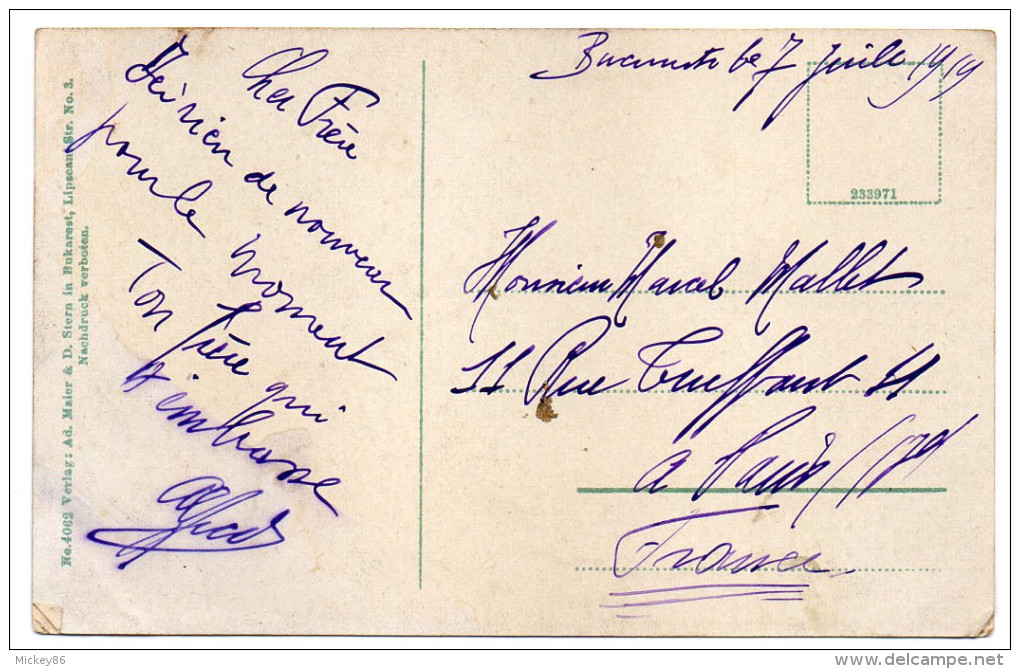 No. 4062 Verlag: Ad. Maier & D. Stern in Bukarest, Lipscani Str. No. 3.
Nachdruck verboten.
Cher Frère
rien de nouveau
pour le moment
Ton frère qui
t'embrasse
Alfred
le 7 Juill 1919
233971
Monsieur Marcel Mallet
11 Rue Truffaut 11
a Paris
France
Mickey86
delcampe.net